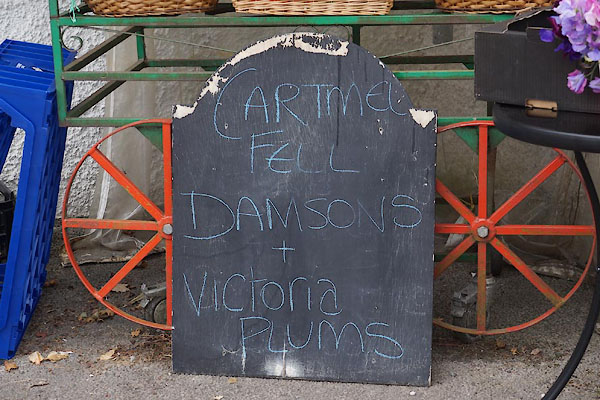 CARTMEL
FELL
DAMSONS
+
Victoria
PLUMS